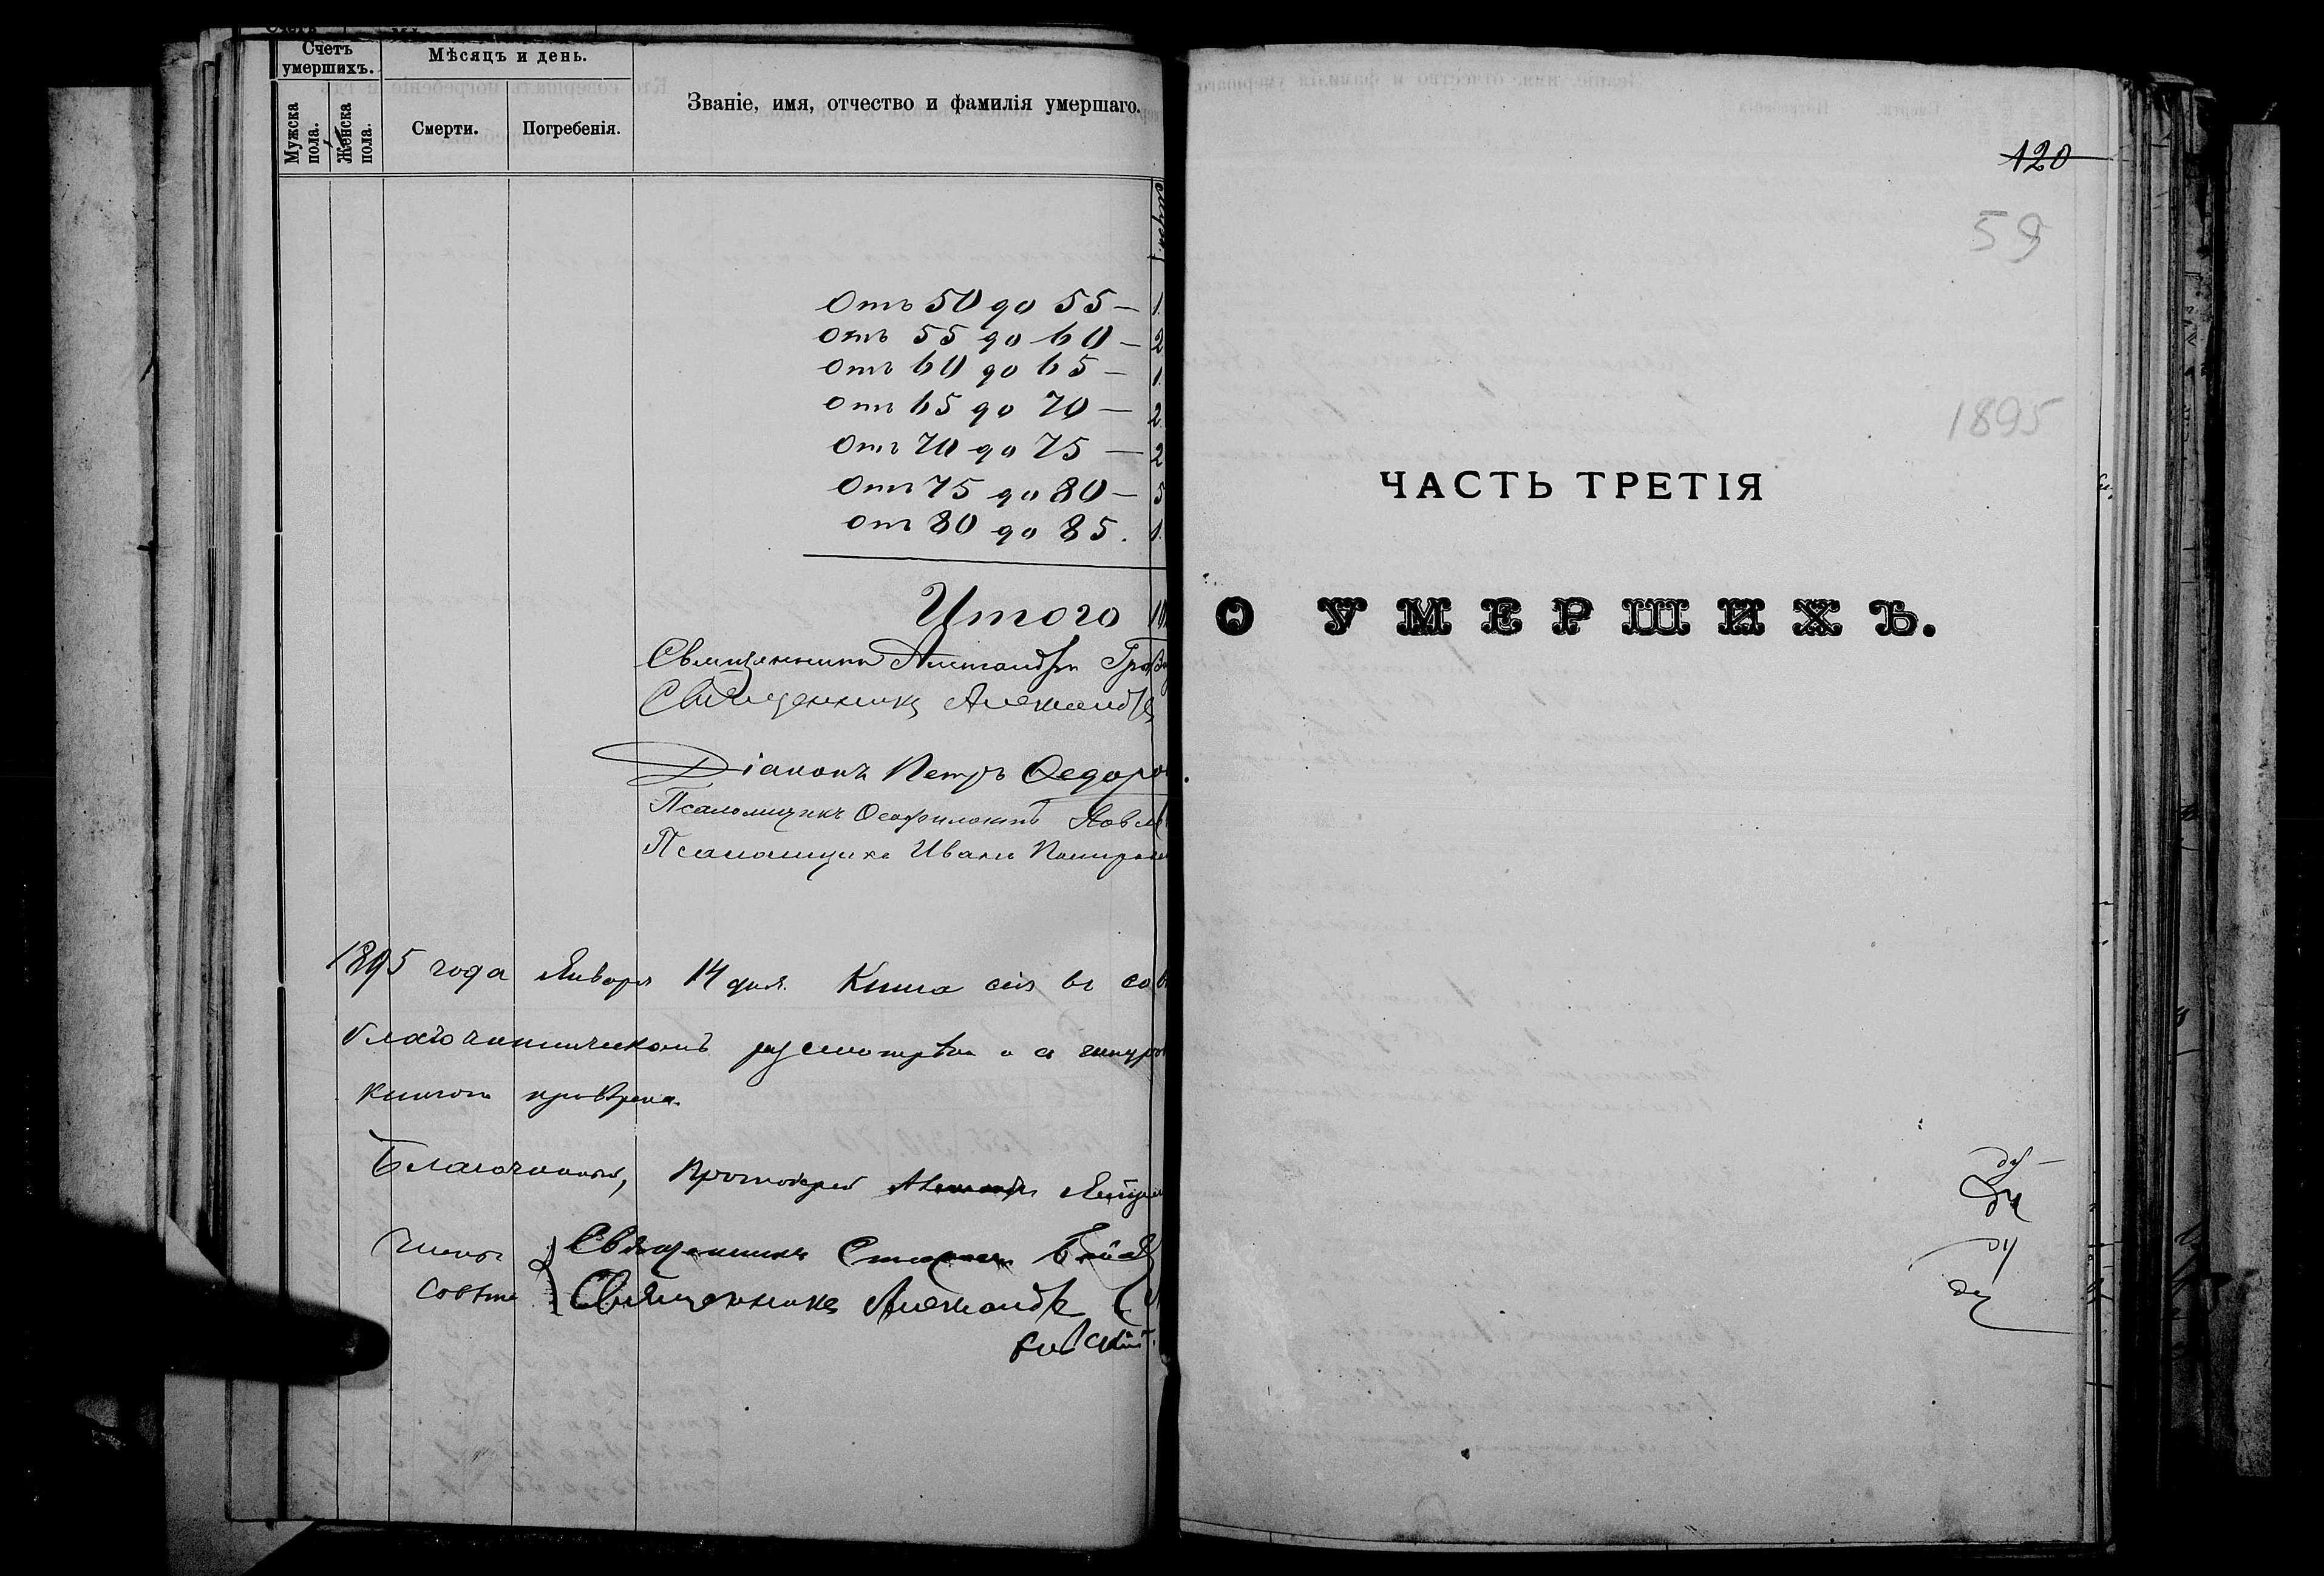 Счетъ умершихъ.
Мѣсяцъ и день.
Званіе, имя, отчество и фамилія умершаго.
Мужска пола.
Женска пола.
Смерти.
Погребенія.
Отъ 50 до 55 — 1.
Отъ 55 до 60 — 2
Отъ 60 до 65 — 1.
Отъ 65 до 70 — 2.
Отъ 70 до 75 — 2
Отъ 75 до 80 — 5
Отъ 80 до 85. 1.
Итого
Священникъ Александръ
Священникъ Александръ
Діаконъ Петръ Ѳедоро
Псаломщикъ
Псаломщикъ Иванъ
1895 года Января 14 дня. Книга сія въ сов
благочинническомъ разсмотрѣна и съ
книгою провѣрена.
Благочинный, Протоіерей
Члены Совѣта
Священникъ
Священникъ Александръ
120
59
1895
ЧАСТЬ ТРЕТІЯ
О УМЕРШИХЪ.